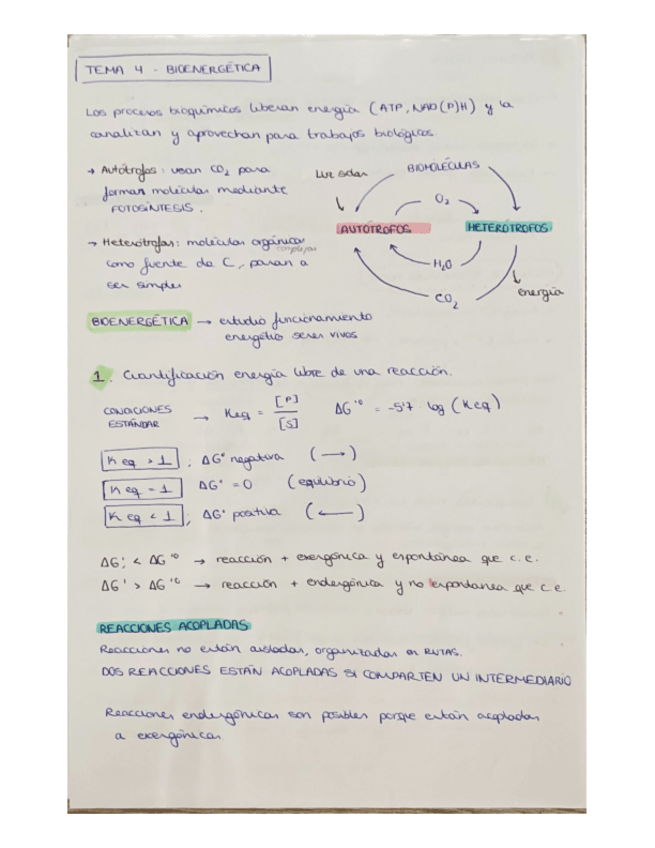 TEMA 4 - BIOENERGÉTICA
Los procesos bioquímicos liberan energía (ATP, NAD(P)H) y la
canalizan y aprovechan para trabajos biológicos.
→ Autótrofos: usan CO2 para
formar moléculas mediante
FOTOSÍNTESIS.
→ Heterótrofos: moléculas orgánicas
complejas
como fuente de C, pasan a
ser simples
Luz solar
BIOMOLÉCULAS
O2
AUTÓTROFOS
HETERÓTROFOS
H2O
CO2
energía
BIOENERGÉTICA → estudio funcionamiento
energético seres vivos
1. Cuantificación energía libre de una reacción.
CONDICIONES
ESTÁNDAR → Keq = [P] / [S] ΔG'º = -5'7 log (Keq)
Keq > 1 ; ΔGº negativa (→)
Keq = 1 ΔG' = 0 (equilibrio)
Keq < 1 ; ΔG' positiva (←)
ΔG' < ΔG'º → reacción + exergónica y espontánea que c.e.
ΔG' > ΔG'º → reacción + endergónica y no espontanea que c.e.
REACCIONES ACOPLADAS
Reacciones no están aisladas, organizadas en RUTAS.
DOS REACCIONES ESTÁN ACOPLADAS SI COMPARTEN UN INTERMEDIARIO
Reacciones endergónicas son posibles porque están acopladas
a exergónicas